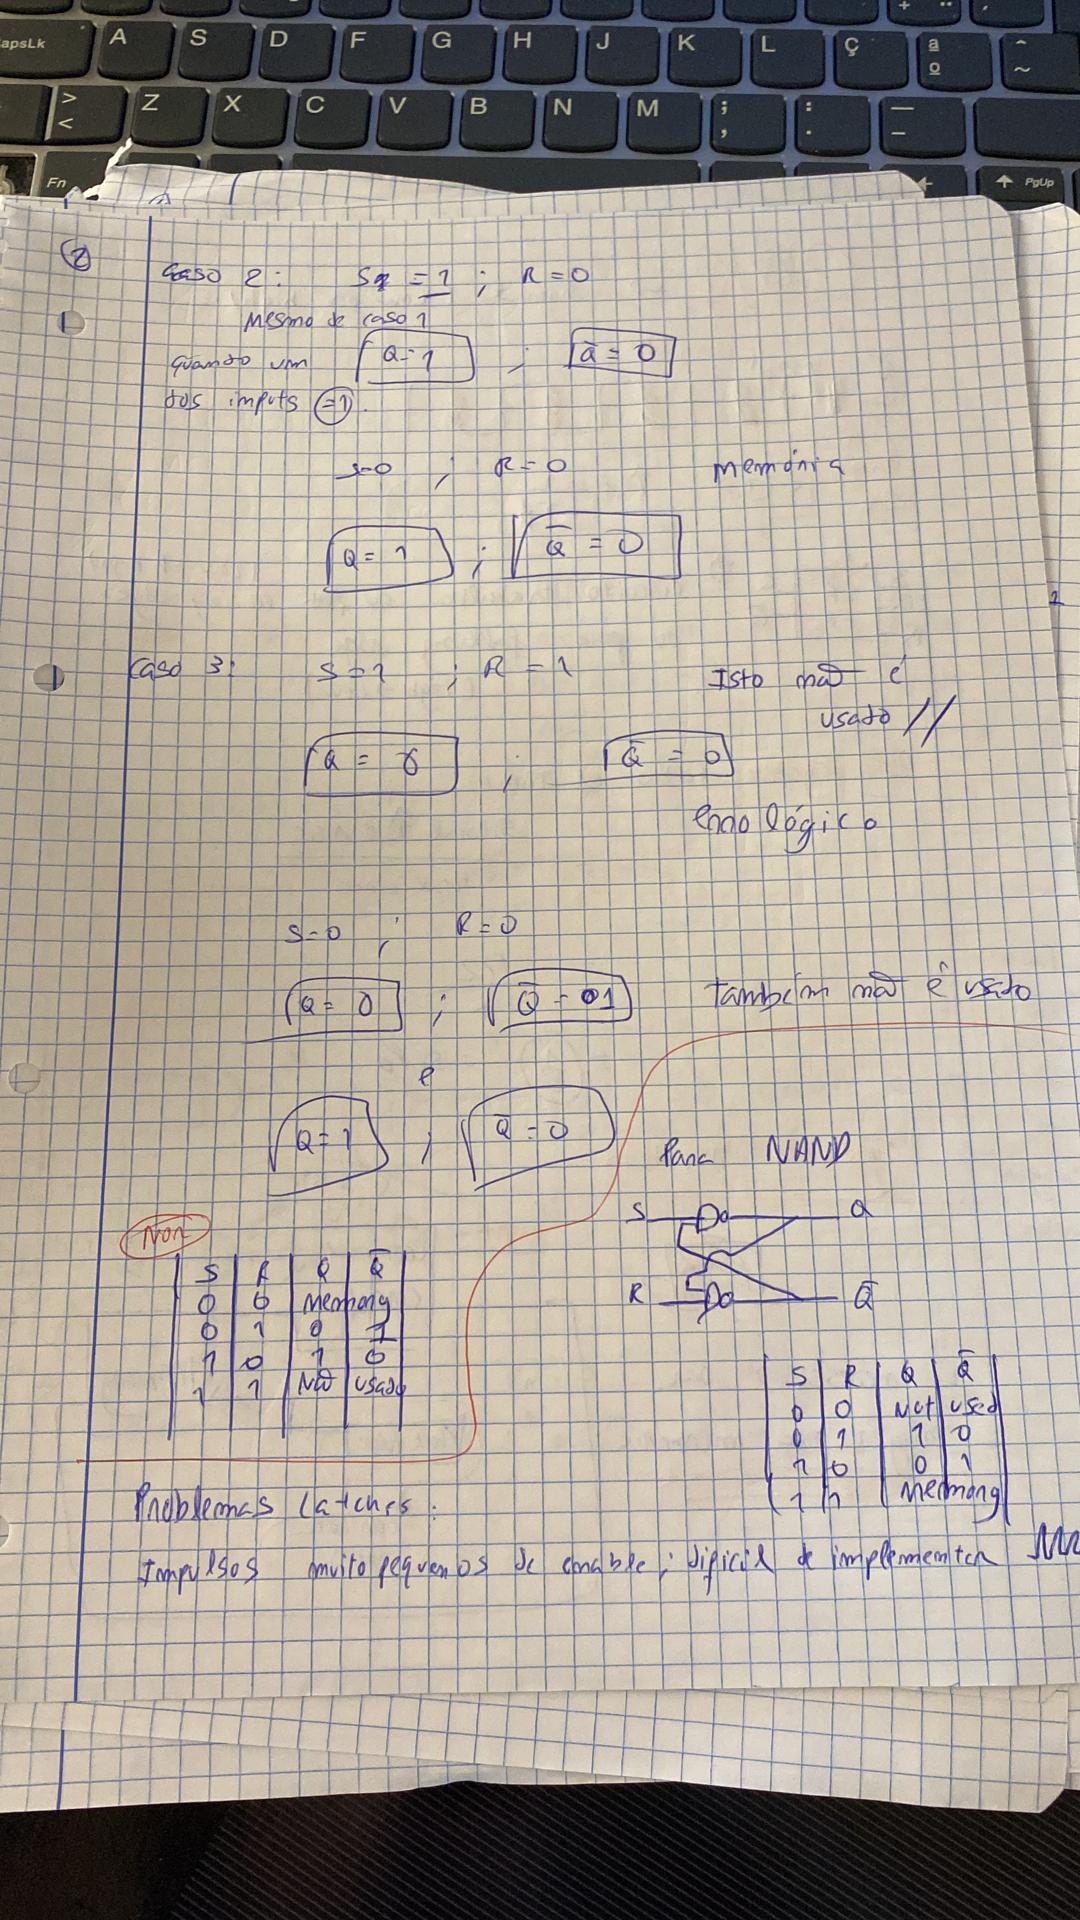 CapsLk A S D F G H J K L Ç ª º ^ ~
> < Z X C V B N M ; , : . — –
Fn PgUp
2
Caso 2: S = 1 ; R = 0
Mesmo de caso 1
Quando um Q = 1 ; Q̅ = 0
dos imputs = 1.
S=0 ; R=0 memória
Q = 1 ; Q̅ = 0
Caso 3: S = 1 ; R = 1 Isto não é
usado //
Q = 0 ; Q̅ = 0
erro lógico
S=0 ; R=0
Q = 0 ; Q̅ = 01 também não é usado
e
Q = 1 ; Q̅ = 0
Para NAND
S Q
R Q̅
Nor
S R Q Q̅
0 0 Memory
0 1 0 1
1 0 1 0
1 1 Não usado
S R Q Q̅
0 0 Not used
0 1 1 0
1 0 0 1
1 1 Memory
Problemas latches:
Impulsos muito pequenos de enable; dificil de implementar